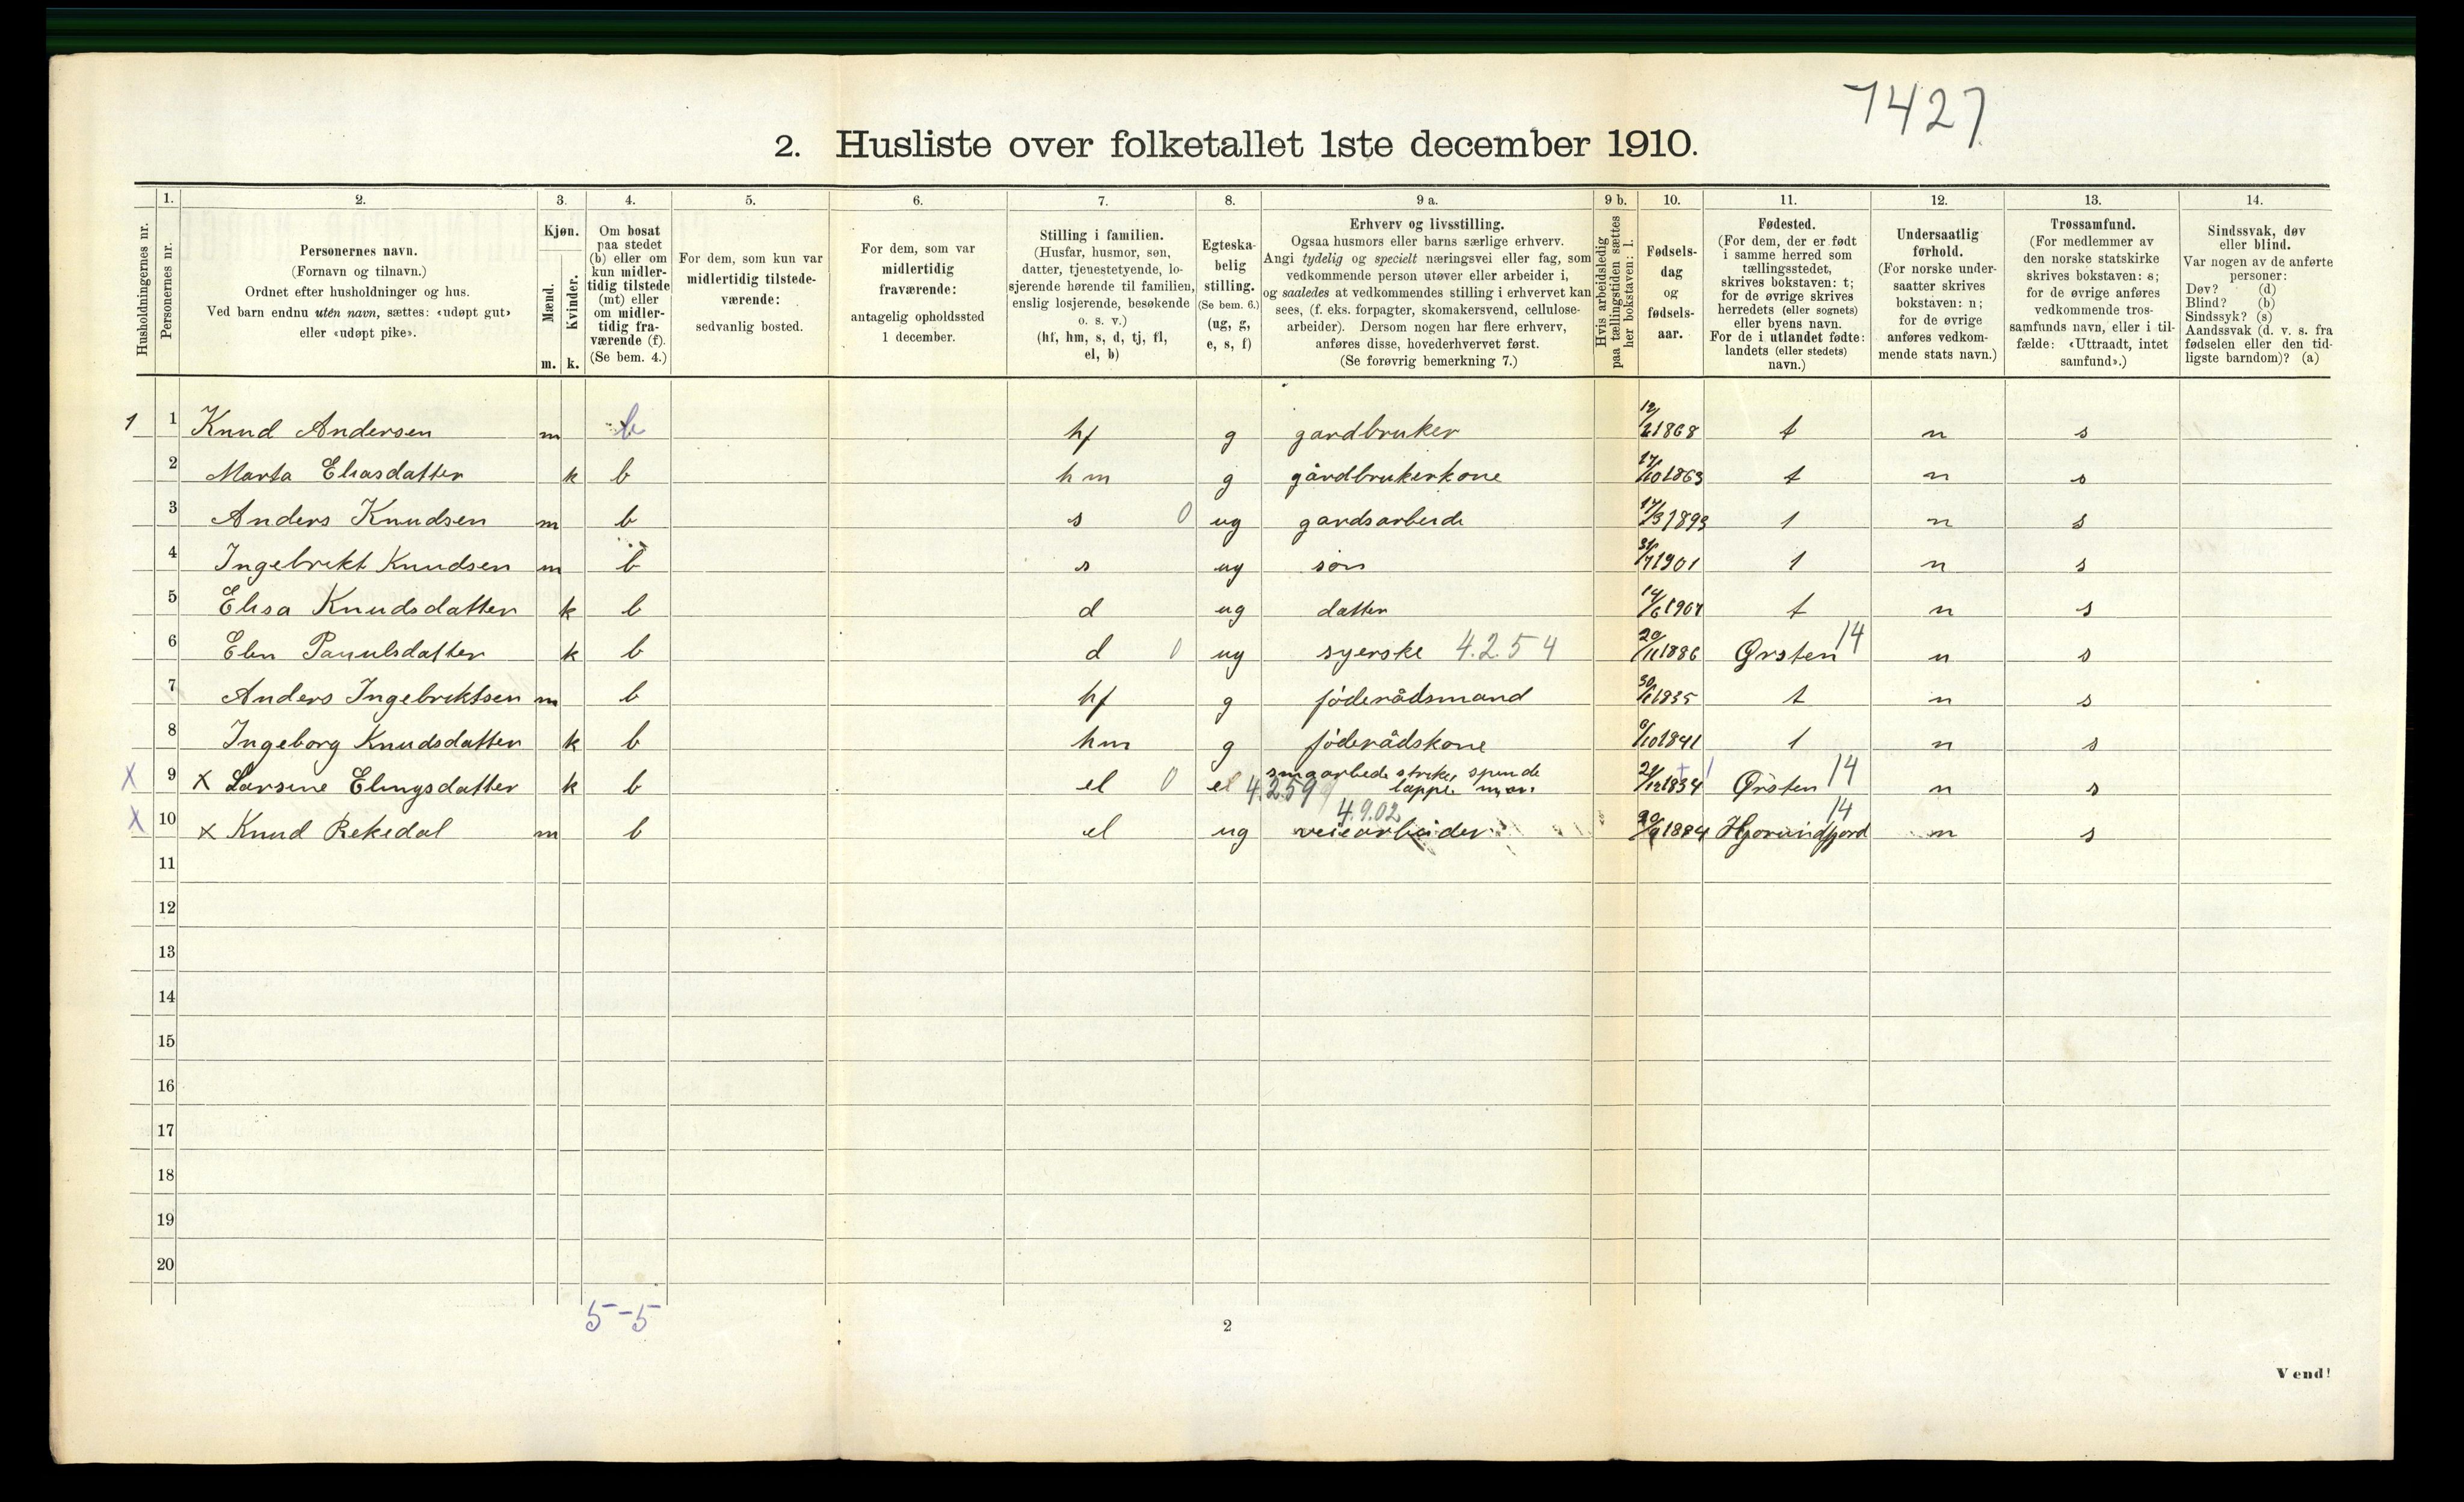 7427
2. Husliste over folketallet 1ste december 1910.
Husholdningernes nr.
1.
Personernes nr.
2.
Personernes navn.
(Fornavn og tilnavn.)
Ordnet efter husholdninger og hus.
Ved barn endnu uten navn, sættes: «udøpt gut»
eller «udøpt pike».
3.
Kjøn.
Mænd.
Kvinder.
m. k.
4.
Om bosat
paa stedet
(b) eller om
kun midler-
tidig tilstede
(mt) eller
om midler-
tidig fra-
værende (f).
(Se bem. 4.)
5.
For dem, som kun var
midlertidig tilstede-
værende:
sedvanlig bosted.
6.
For dem, som var
midlertidig
fraværende:
antagelig opholdssted
1 december.
7.
Stilling i familien.
(Husfar, husmor, søn,
datter, tjenestetyende, lo-
sjerende hørende til familien,
enslig losjerende, besøkende
o. s. v.)
(hf, hm, s, d, tj, fl,
el, b)
8.
Egteska-
belig
stilling.
(Se bem. 6.)
(ug, g,
e, s, f)
9 a.
Erhverv og livsstilling.
Ogsaa husmors eller barns særlige erhverv.
Angi tydelig og specielt næringsvei eller fag, som
vedkommende person utøver eller arbeider i,
og saaledes at vedkommendes stilling i erhvervet kan
sees, (f. eks. forpagter, skomakersvend, cellulose-
arbeider). Dersom nogen har flere erhverv,
anføres disse, hovederhvervet først.
(Se forøvrig bemerkning 7.)
9 b.
Hvis arbeidsledig
paa tællingstiden sættes
her bokstaven: l.
10.
Fødsels-
dag
og
fødsels-
aar.
11.
Fødested.
(For dem, der er født
i samme herred som
tællingsstedet,
skrives bokstaven: t;
for de øvrige skrives
herredets (eller sognets)
eller byens navn.
For de i utlandet fødte:
landets (eller stedets)
navn.)
12.
Undersaatlig
forhold.
(For norske under-
saatter skrives
bokstaven: n;
for de øvrige
anføres vedkom-
mende stats navn.)
13.
Trossamfund.
(For medlemmer av
den norske statskirke
skrives bokstaven: s;
for de øvrige anføres
vedkommende tros-
samfunds navn, eller i til-
fælde: «Uttraadt, intet
samfund».)
14.
Sindssvak, døv
eller blind.
Var nogen av de anførte
personer:
Døv? (d)
Blind? (b)
Sindssyk? (s)
Aandssvak (d. v. s. fra
fødselen eller den tid-
ligste barndom)? (a)
1 1 Knud Andersen m b hf g gardbruker 12/2 1868 t n s
2 Marta Eliasdatter k b hm g gårdbrukerkone 17/10 1863 t n s
3 Anders Knudsen m b s 0 ug gardsarbeide 17/3 1893 t n s
4 Ingebrikt Knudsen m b s ug søn 31/7 1901 t n s
5 Elisa Knudsdatter k b d ug datter 14/6 1907 t n s
6 Elen Paulsdatter k b d 0 ug syerske 4.2.54 20/11 1886 Ørsten 14 n s
7 Anders Ingebriktsen m b hf g føderådsmand 1835 t n s
8 Ingeborg Knudsdatter k b hm g føderådskone 6/10 1841 t n s
X 9 x Larsine Elingsdatter k b el 0 el 4.259 smaarbede strike, spinde lappe m, m. 21/12 1834 Ørsten 14 n s
X 10 x Knud Rekedal m b el ug veiearbeider 4.9.02 1884 Hjørundfjord 14 n s
11
12
13
14
15
16
17
18
19
20
5-5
2
Vend!